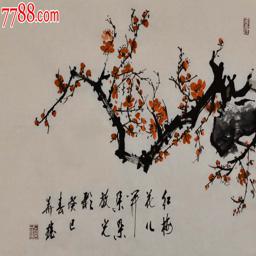 7788.com
红梅
花儿
开
朵朵
放光
彩
癸巳
春